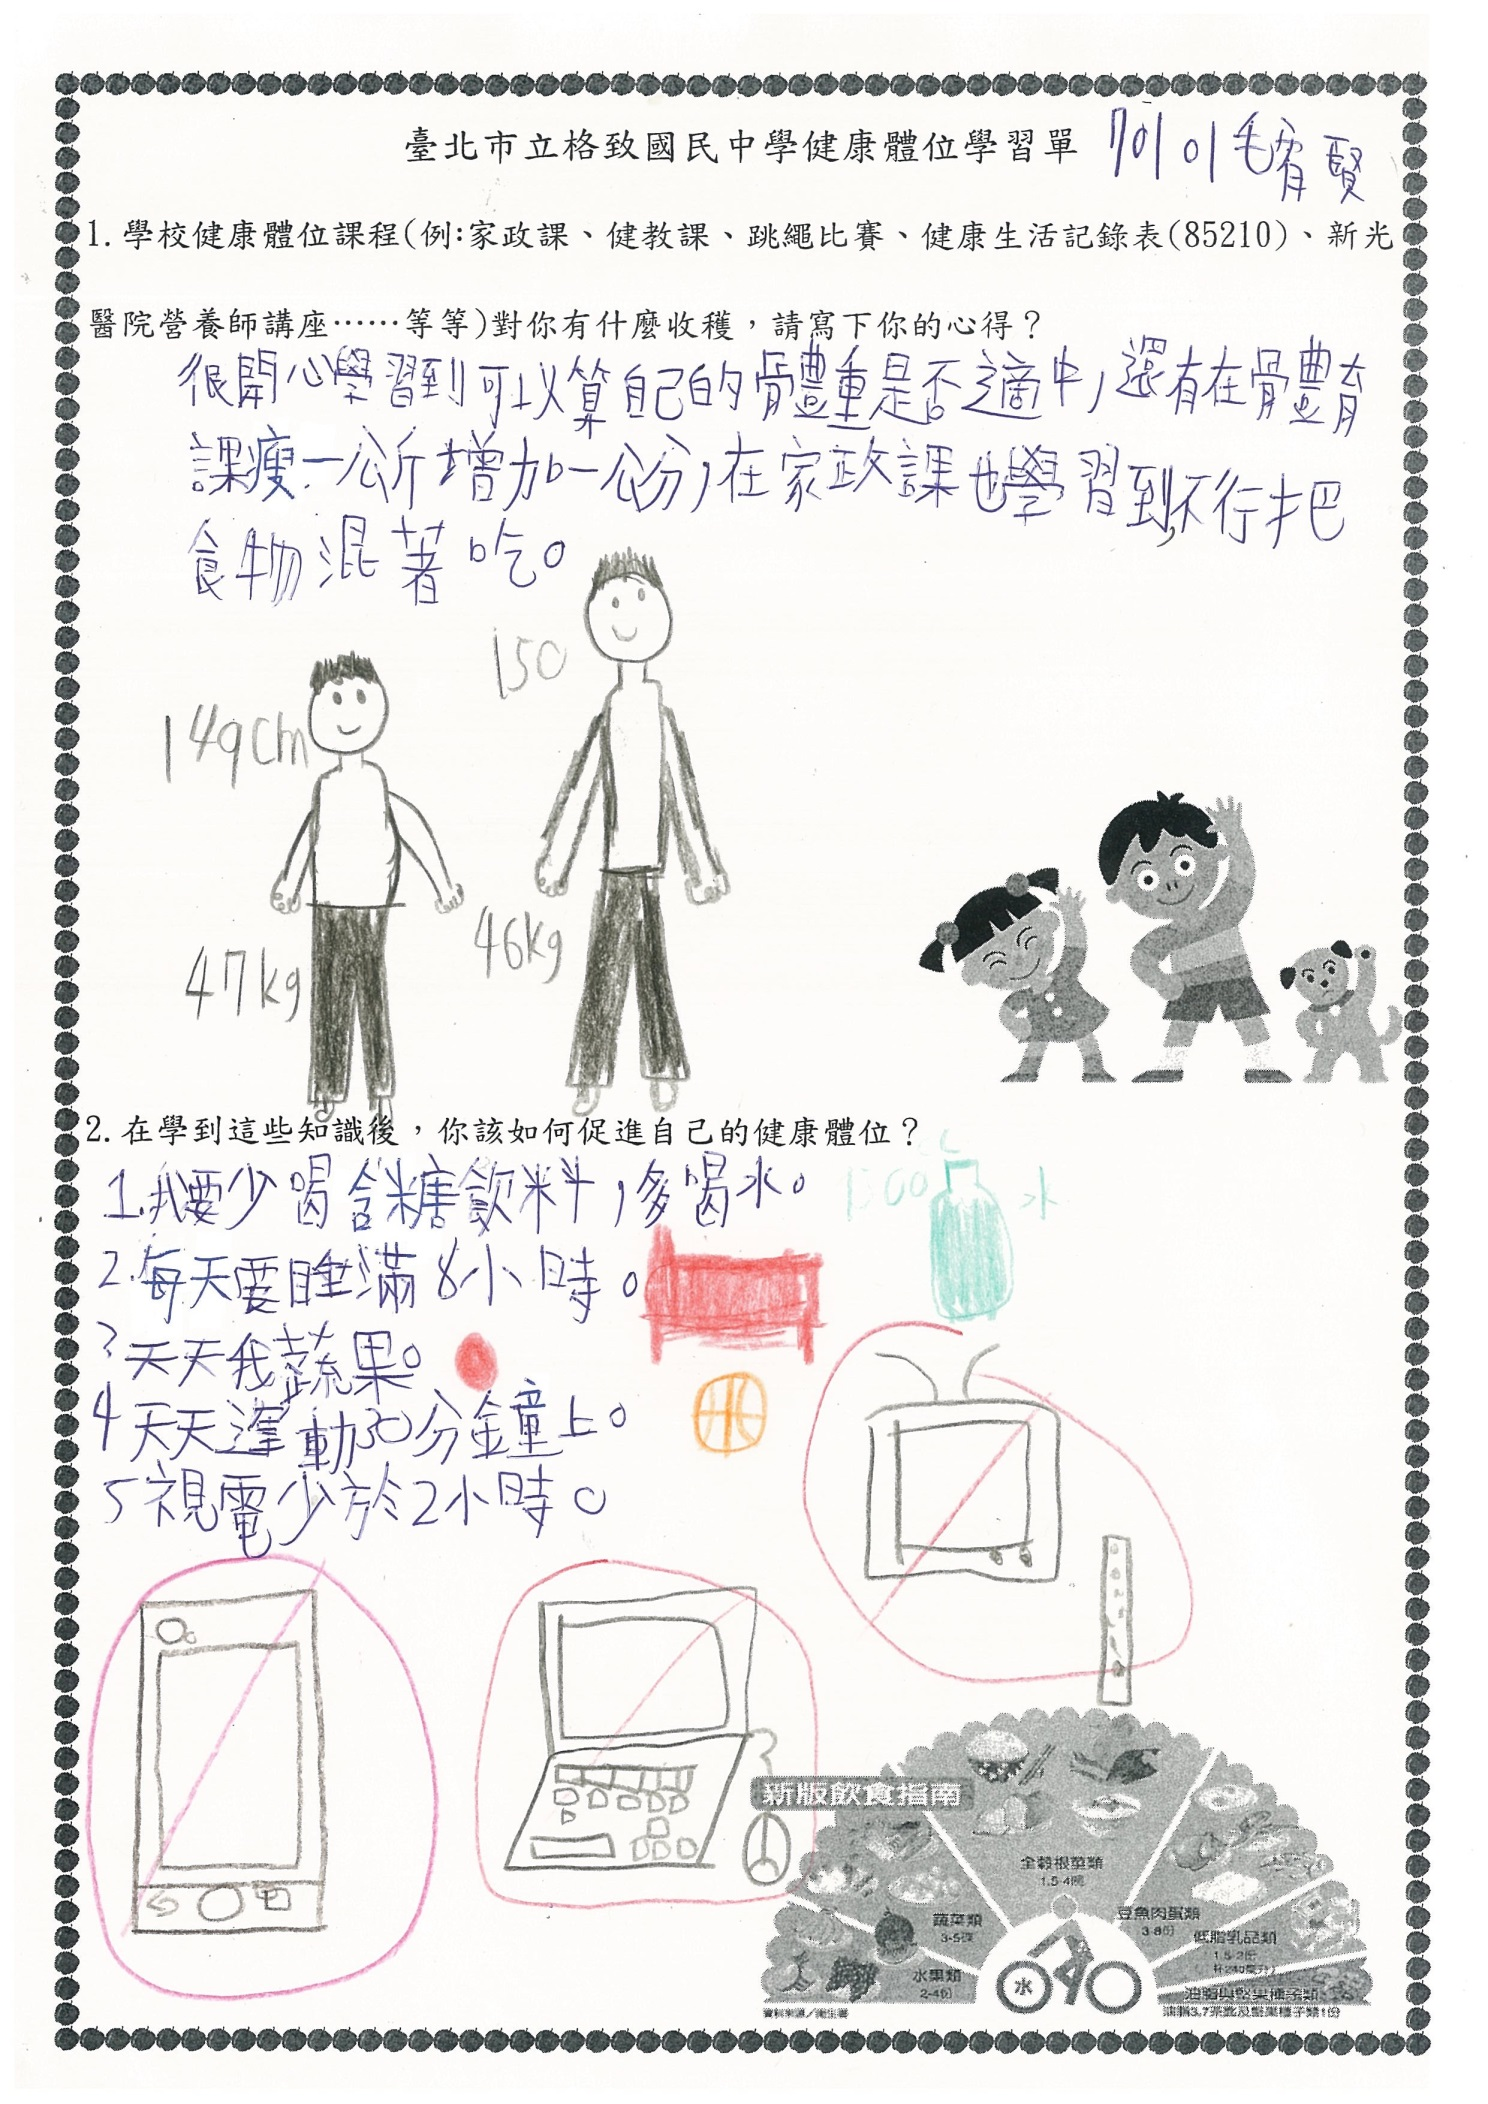 臺北市立格致國民中學健康體位學習單 70101毛宥賢
1.學校健康體位課程(例:家政課、健教課、跳繩比賽、健康生活記錄表(85210)、新光
醫院營養師講座……等等)對你有什麼收穫，請寫下你的心得？
很開心學習到可以算自己的體重是否適中，還有在體育
課瘦一公斤增加一公分，在家政課也學習到不行把
食物混著吃。
150
149cm
46kg
47kg
2.在學到這些知識後，你該如何促進自己的健康體位？
1.我要少喝含糖飲料，多喝水。
水
2.每天要睡滿8小時。
3天天我蔬果。
4天天運動30分鐘上。
5視電少於2小時。
新版飲食指南
全穀根莖類
1.5-4碗
豆魚肉蛋類
3-8份
蔬菜類
3-5碟
低脂乳品類
1.5-2杯
水果類
2-4份
水
油脂與堅果種子類
油脂3-7茶匙及堅果種子類1份
資料來源／衛生署